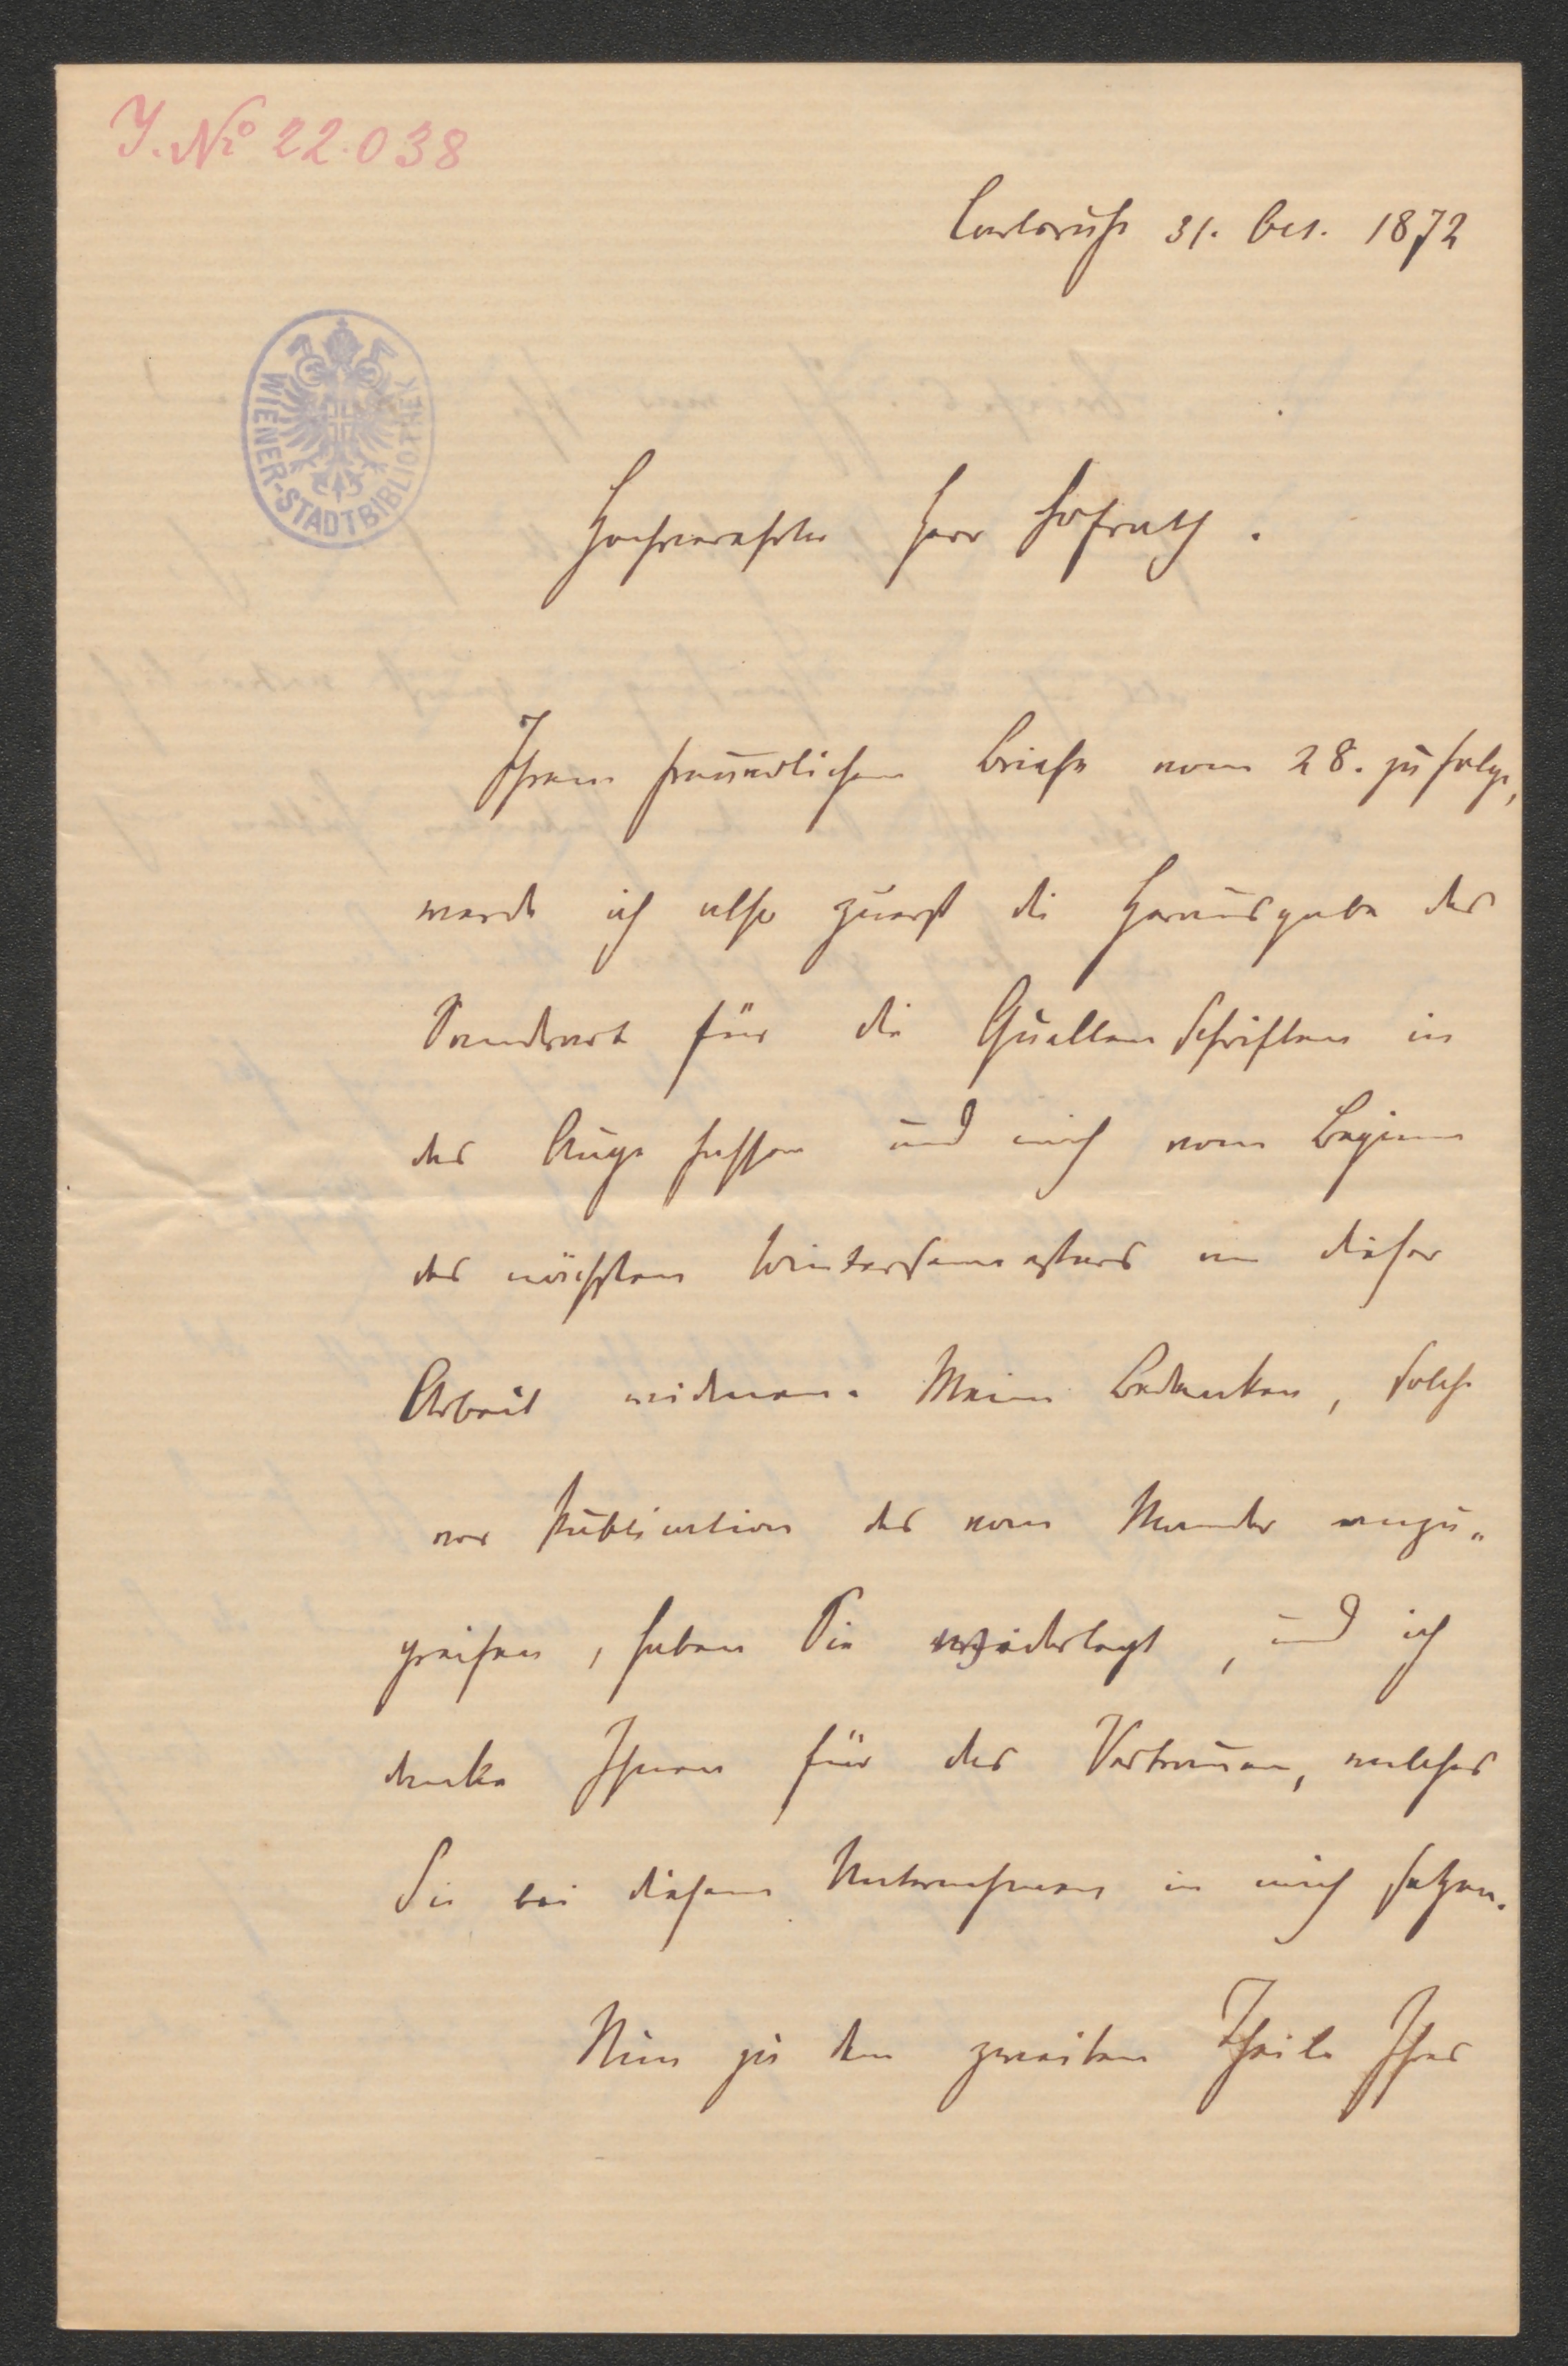 J. No 22.038
Carlsruhe 31. Oct. 1872
WIENER-STADTBIBLIOTHEK
Hochverehrter Herr Hofrath.
Ihrem freundlichen Briefe vom 28. zu folge,
werde ich also zuerst die Herausgabe des
Sandrart für die Quellenschriften in
das Auge fassen und mich vom Beginn
des nächsten Wintersemesters an dieser
Arbeit widmen. Mein Bedenken, solche
vor Publication des van Mander anzu-
greifen, haben Sie widerlegt, und ich
danke Ihnen für das Vertrauen, welches
Sie bei diesem Unternehmen in mich setzen.
Nun zu dem zweiten Theile Ihres